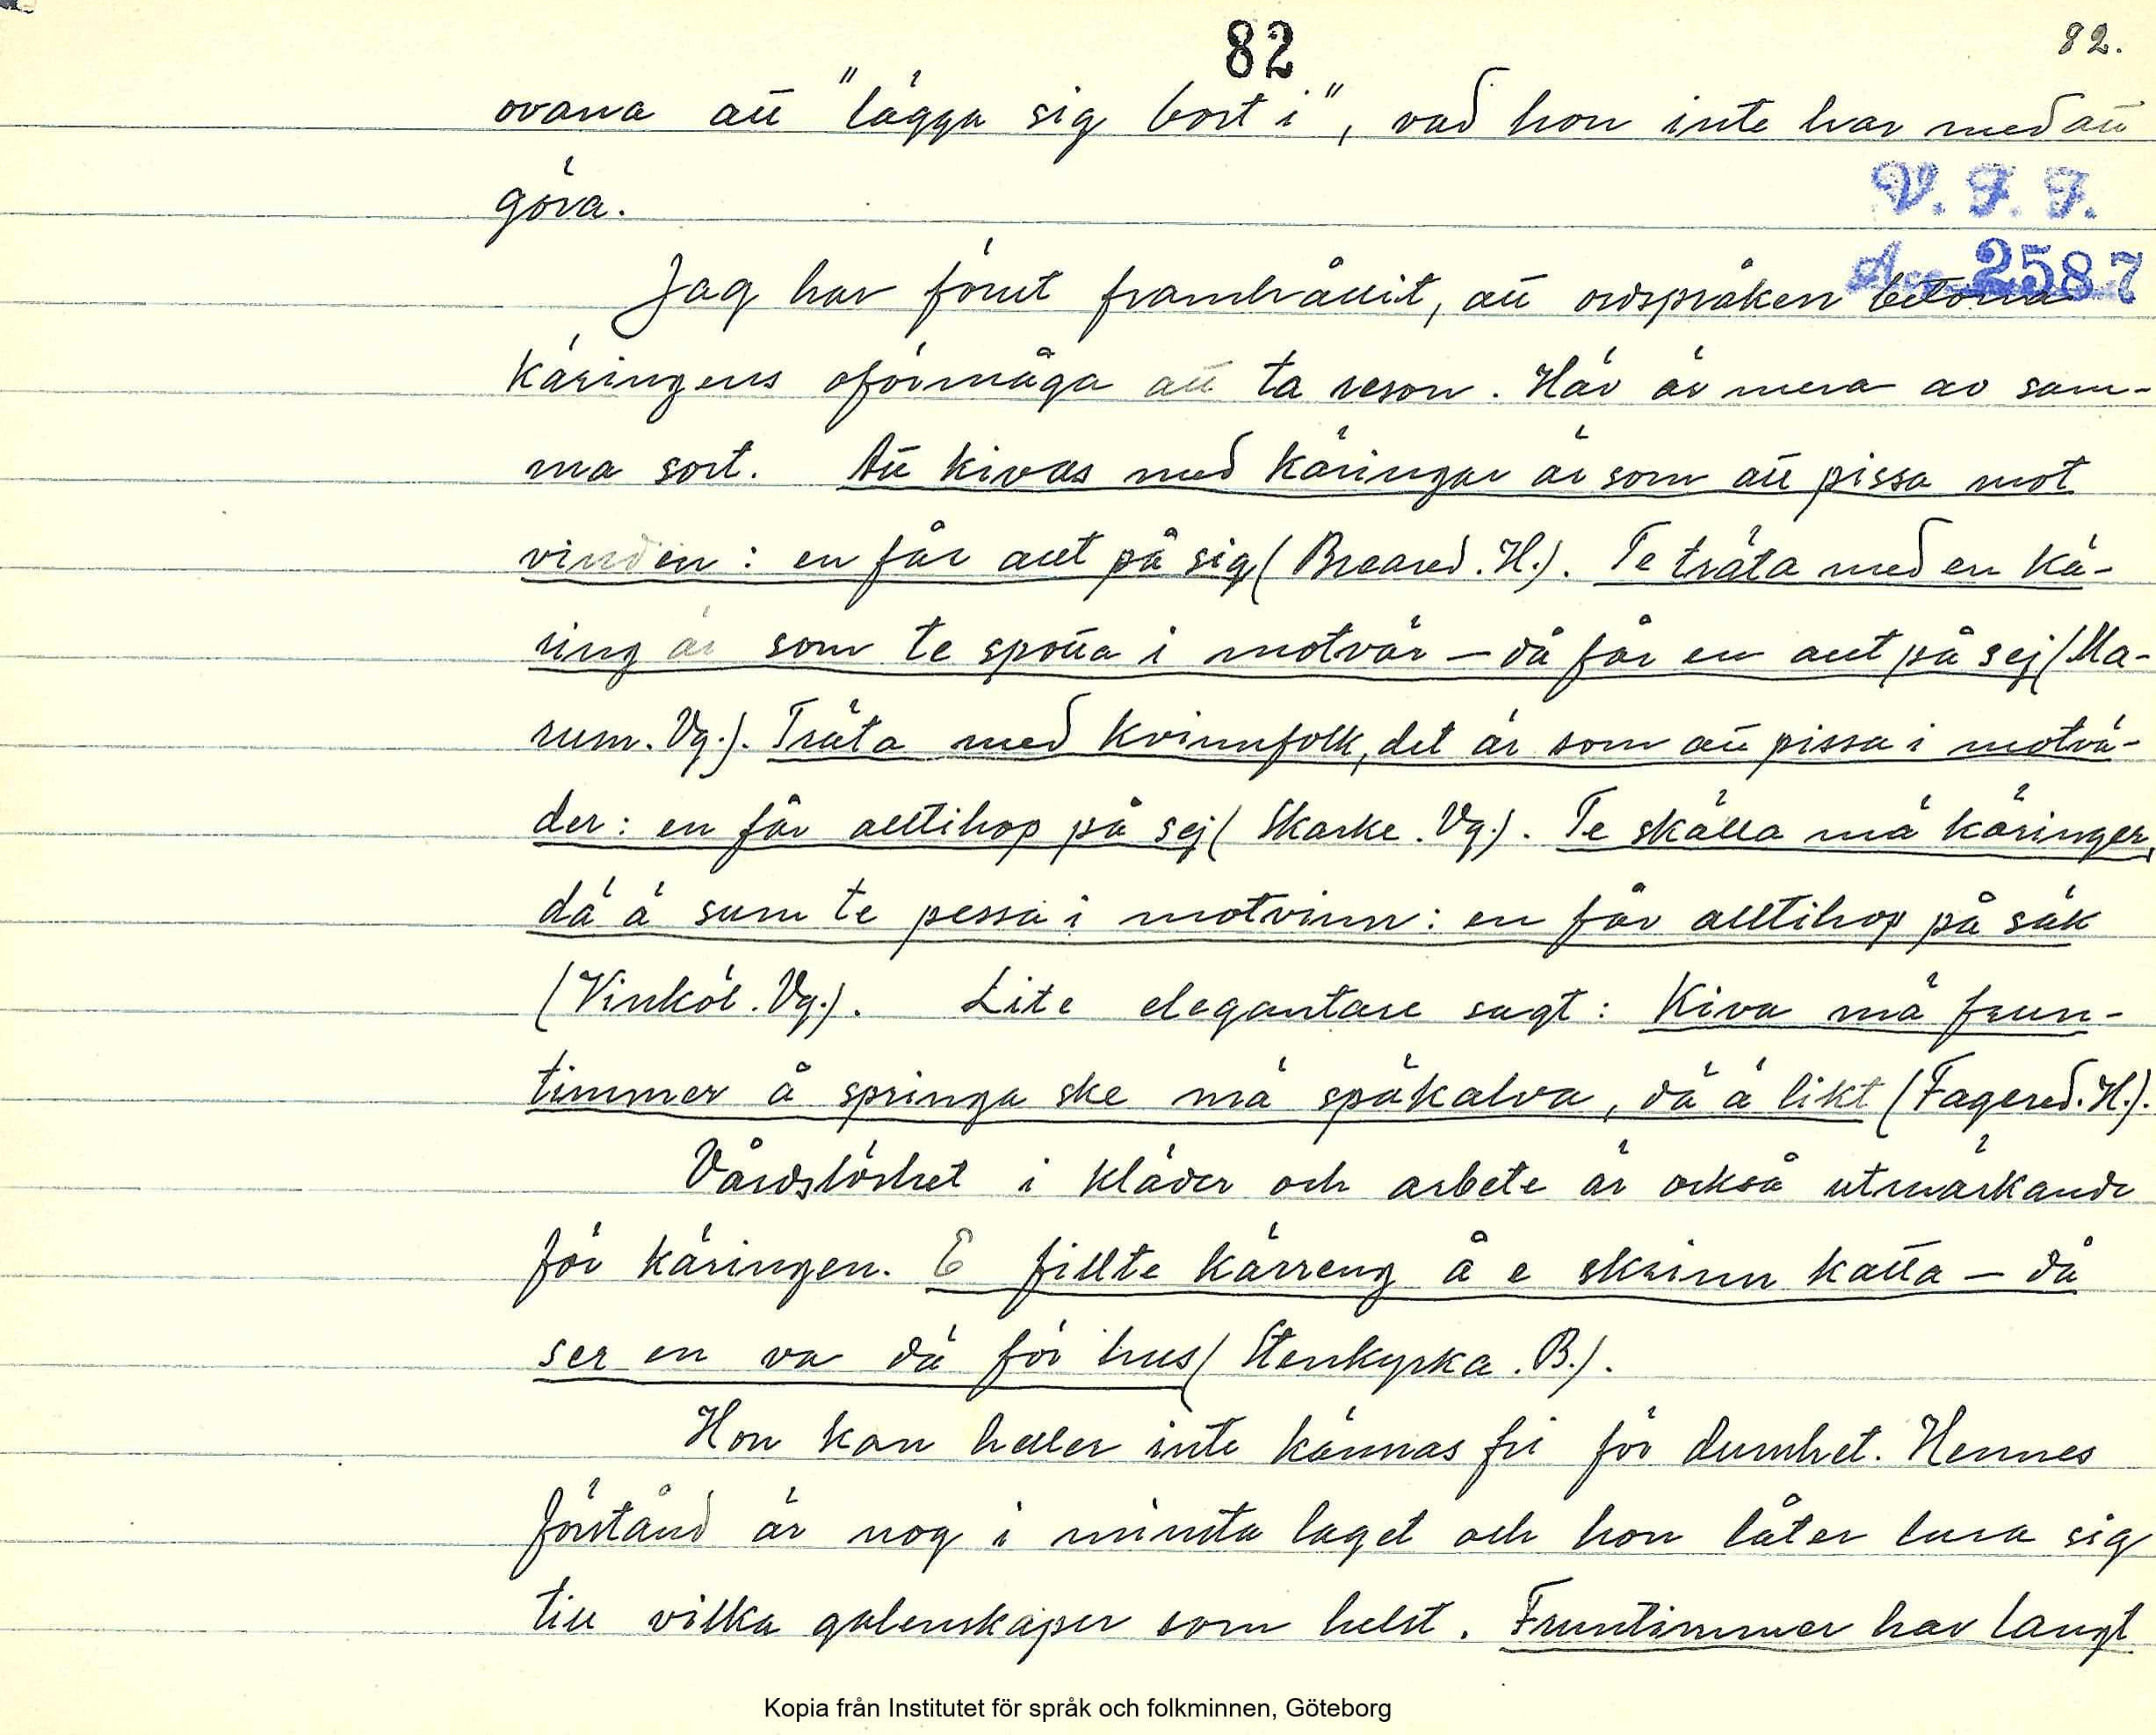 82
82.
ovana att "lägga sig bort i", vad hon inte har med att
göra.
V. F. F.
Acc. 2587
Jag har förut framhållit, att ordspråken betona
käringens oförmåga att ta reson. Här är mera av sam-
ma sort. Att kivas med käringar är som att pissa mot
vinden: en får allt på sig (Breared. H.). Te träta med en kä-
ring är som te spotta i motvär - då får en allt på sej (Ma-
rum. Vg.). Träta med kvinnfolk, det är som att pissa i motvä-
der: en får alltihop på sej (Skarke. Vg.). Te skälla mä käringer,
dä ä sum te pessa i motvinn: en får alltihop på säk
(Vinköl. Vg.). Lite elegantare sagt: Kiva mä frun-
timmer å springa ske mä späkalva, dä ä likt (Fagered. H.).
Vårdslöshet i kläder och arbete är också utmärkande
för käringen. E fillte kärreng å e skrinn katta - då
ser en va dä för hus (Stenkyrka. B.).
Hon kan heller inte kännas fri för dumhet. Hennes
förstånd är nog i minsta laget och hon låter lura sig
till vilka galenskaper som helst. Fruntimmer har langt
Kopia från Institutet för språk och folkminnen, Göteborg